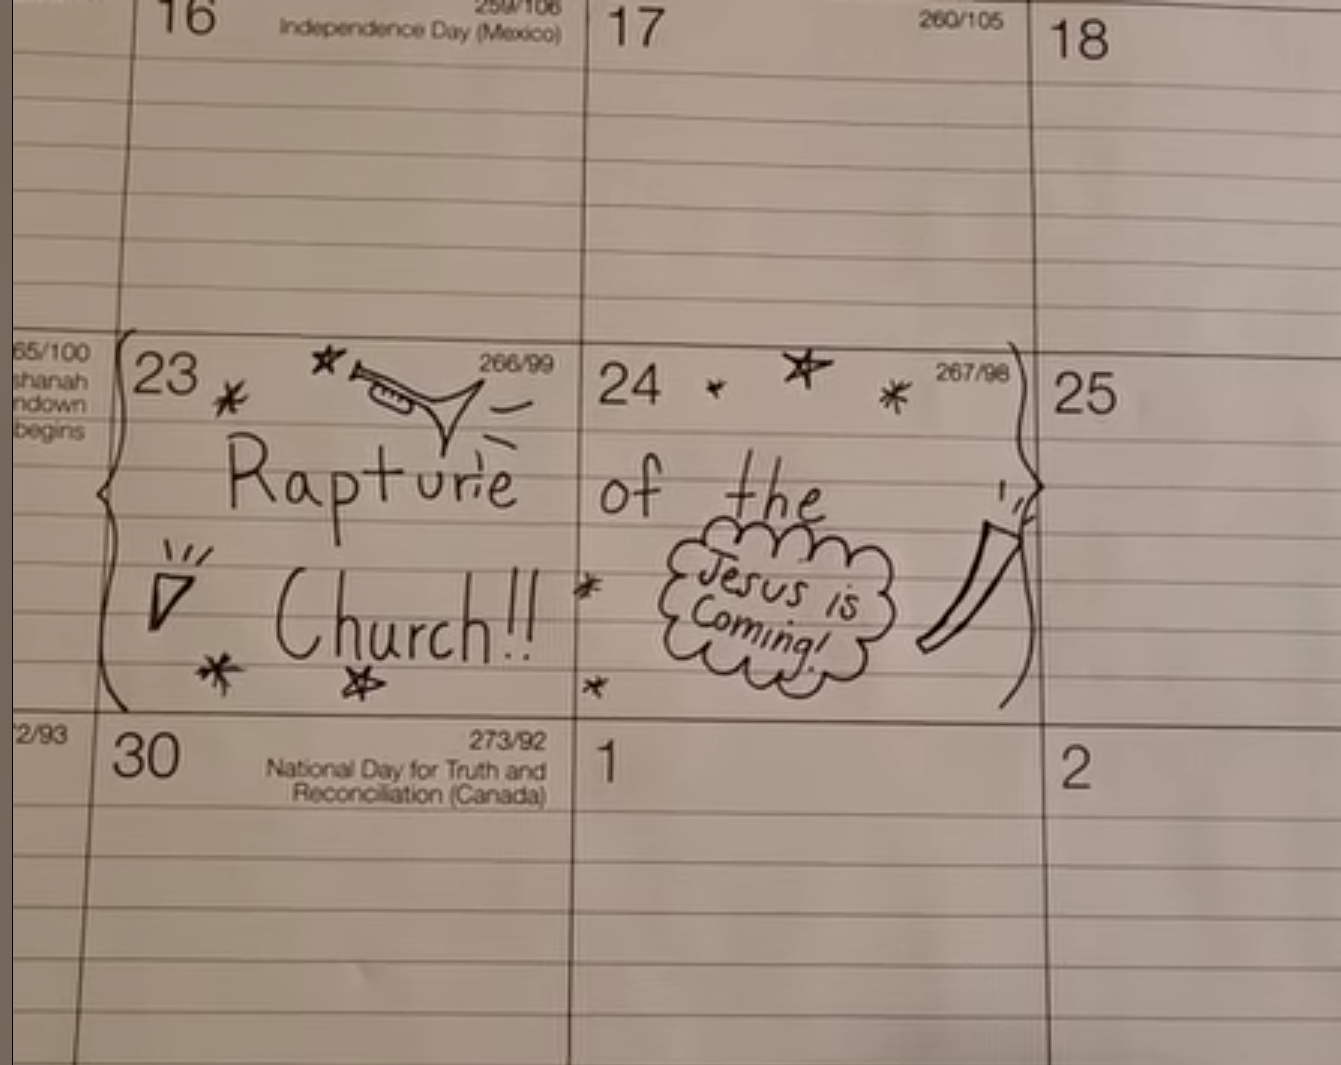 16
259/106
Independence Day (Mexico)
17
260/105
18
65/100
shanah
ndown
begins
23
266/99
24
267/98
25
Rapture of the
Church!!
Jesus is
Coming!
2/93
30
273/92
National Day for Truth and
Reconciliation (Canada)
1
2